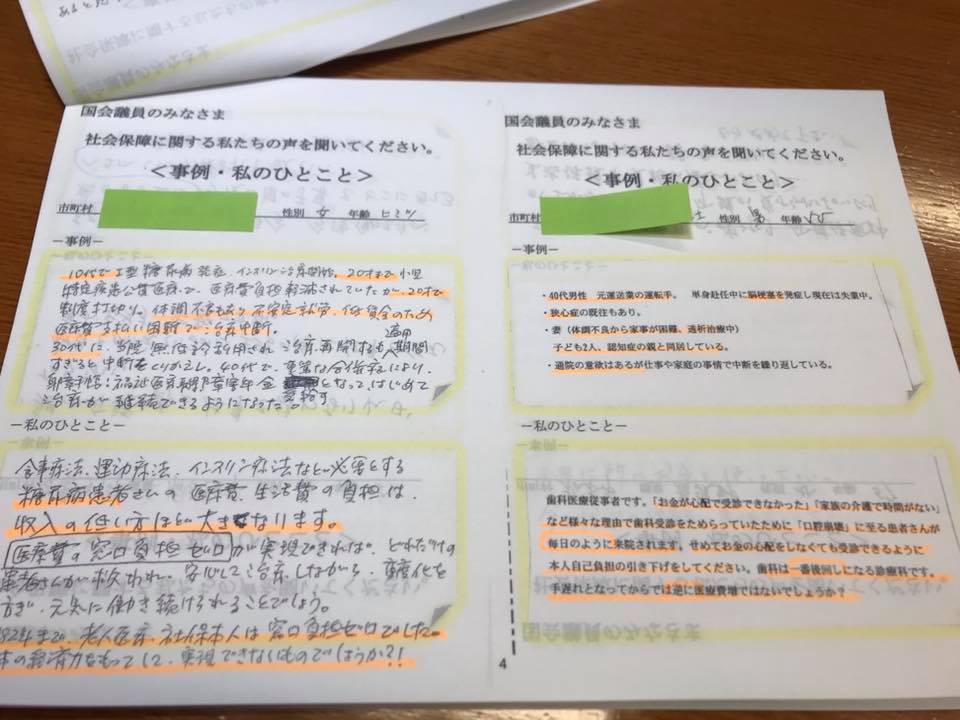 国会議員のみなさま
社会保障に関する私たちの声を聞いてください。
＜事例・私のひとこと＞
市町村 性別 女 年齢 ヒミツ
－事例－
10代で1型糖尿病発症、インスリン治療開始。20才まで小児
特定疾患公費医療で、医療費負担軽減されていたが、20才で
制度打切り。体調不良もあり不安定就労、低賃金のため
医療費支払い困難で治療中断。
30代に、当院無低診利用され治療再開するも、適用期間
すぎると中断をくりかえし。40代で、重篤な合併症により、
となって、はじめて
治療が継続できるようになった。
－私のひとこと－
食事療法、運動療法、インスリン療法などを必要とする
糖尿病患者さんの医療費、生活費の負担は、
収入の低い方ほど大きくなります。
医療費の窓口負担ゼロが実現できれば、どれだけの
患者さんが救われ、安心して治療しながら、重症化を
防ぎ、元気に働き続けられることでしょう。
まで、老人医療、社保本人は窓口負担ゼロでした。
の経済力をもってして、実現できないものでしょうか？！
国会議員のみなさま
社会保障に関する私たちの声を聞いてください。
＜事例・私のひとこと＞
市町村 性別 男 年齢
－事例－
・40代男性　元運送業の運転手。　単身赴任中に脳梗塞を発症し現在は失業中。
・狭心症の既往もあり。
・妻（体調不良から家事が困難、透析治療中）
子ども2人、認知症の親と同居している。
・通院の意欲はあるが仕事や家庭の事情で中断を繰り返している。
－私のひとこと－
歯科医療従事者です。「お金が心配で受診できなかった」「家族の介護で時間がない」
など様々な理由で歯科受診をためらっていたために「口腔崩壊」に至る患者さんが
毎日のように来院されます。せめてお金の心配をしなくても受診できるように
本人自己負担の引き下げをしてください。歯科は一番後回しになる診療科です。
手遅れとなってからでは逆に医療費増ではないでしょうか？
4